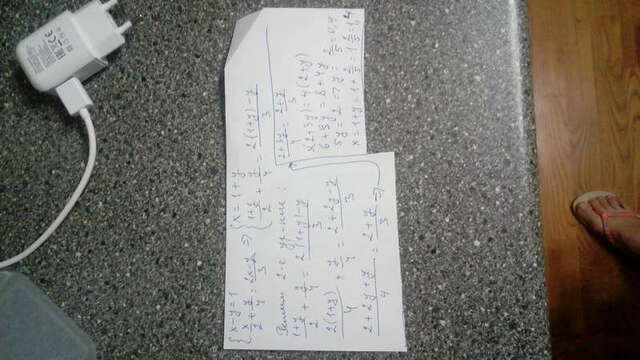 { x-y=1
x/2 + y/4 = (2x-y)/3 => { x = 1+y
(1+y)/2 + y/4 = (2(1+y)-y)/3
Решим 2-е ур-ние:
(1+y)/2 + y/4 = (2(1+y)-y)/3
2(1+y)/4 + y/4 = (2+2y-y)/3
(2+2y+y)/4 = (2+y)/3 =>
(2+3y)/4 = (2+y)/3
3(2+3y) = 4(2+y)
6+9y = 8+4y
5y=2 => y = 2/5 = 0,4
x = 1+y = 1 + 2/5 = 1 2/5 = 1,4
CE